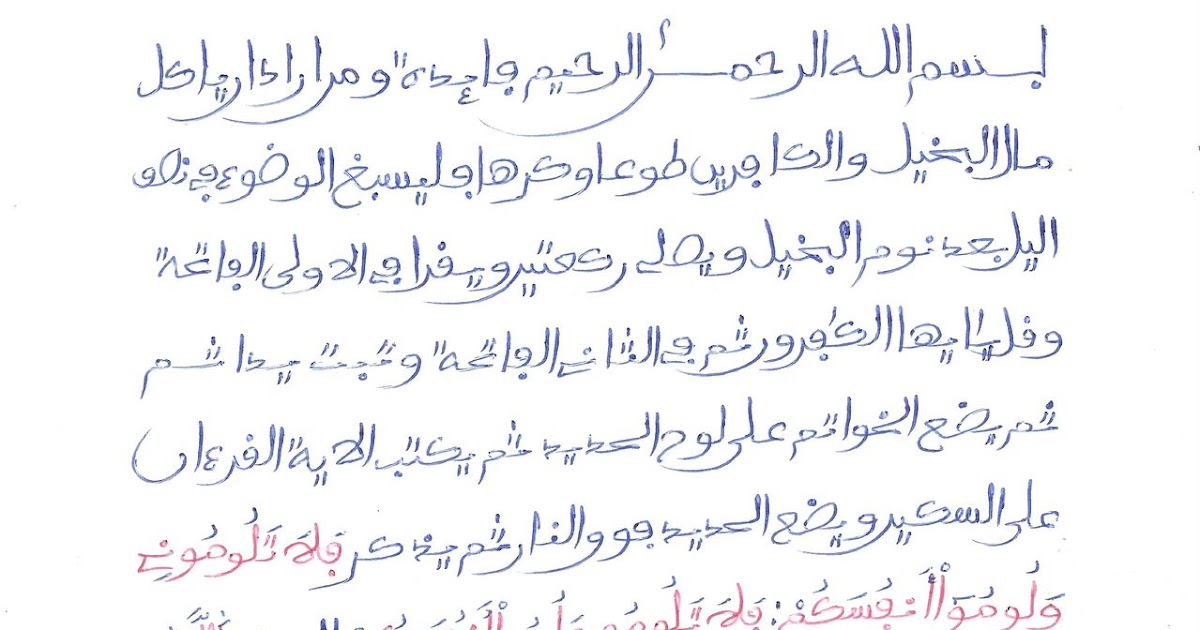 بسم الله الرحمن الرحيم فائدة ومن اراد ان ياكل
مال البخيل والكافرين طوعا وكرها فليسبغ الوضوء في نصف
اليل بعد نوم البخيل ويصلي ركعتين ويقرا في الاولى الفاتحة
وقل يا ايها الكفرون ثم في الثاني الفاتحة وتبت يدا ثم
ثم يضع الخواتم على لوح الحديد ثم يكتب الاية القرءان
على السكين ويضع الحديد فوق النار ثم يذكر فَلَا تَلُومُونِي
وَلُومُوٓاْ أَنفُسَكُمْ: فَلَا تَلُومُونِي وَلُومُوٓاْ أَنفُسَكُم